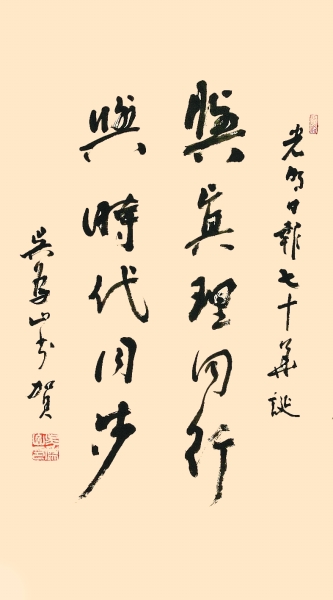 光明日報七十華誕
與真理同行
與時代同步
吳為山書賀